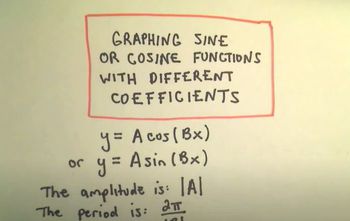 GRAPHING SINE
OR COSINE FUNCTIONS
WITH DIFFERENT
COEFFICIENTS
y = A cos(Bx)
or y = A sin(Bx)
The amplitude is: |A|
The period is: 2π